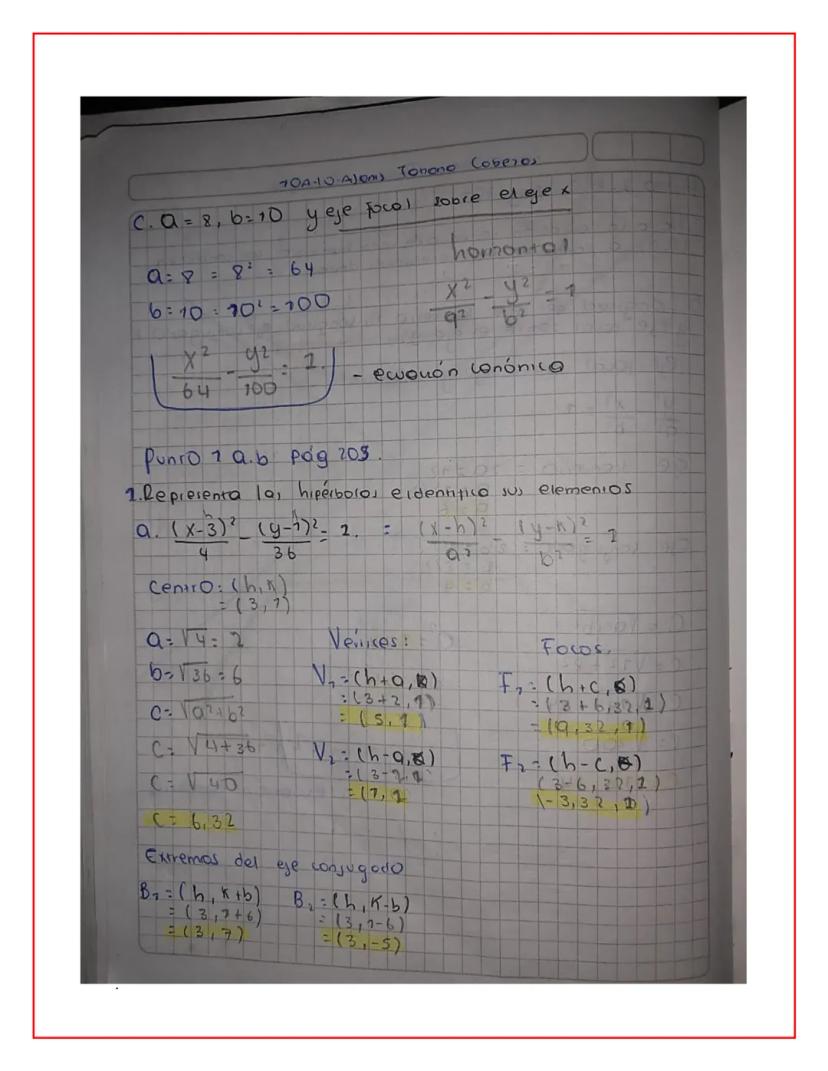 10A-10 Alonis Tonono Coberos
C. a = 8, b = 10 y eje focal sobre el eje x
horizontal
a = 8 = 8² = 64
b = 10 = 10² = 100
x²/a² - y²/b² = 1
x²/64 - y²/100 = 1. - ecuación canónica
Punto 1 a.b pág 209.
1. Representa las hipérbolas e identifica sus elementos
a. (x-3)²/4 - (y-1)²/36 = 1. = (x-h)²/a² - (y-k)²/b² = 1
Centro: (h, k)
= (3, 1)
a = √4 = 2
b = √36 = 6
c = √a²+b²
c = √4+36
c = √40
c = 6,32
Vértices:
V₁ = (h+a, k)
= (3+2, 1)
= (5, 1)
V₂ = (h-a, k)
= (3-2, 1
= (1, 1
Focos.
F₁ = (h+c, k)
= (3+6,32, 1)
= (9,32, 1)
F₂ = (h-c, k)
(3-6,32, 1)
(-3,32, 1)
Extremos del eje conjugado
B₁ = (h, k+b)
= (3, 1+6)
= (3, 7)
B₂ = (h, k-b)
= (3, 1-6)
= (3, -5)